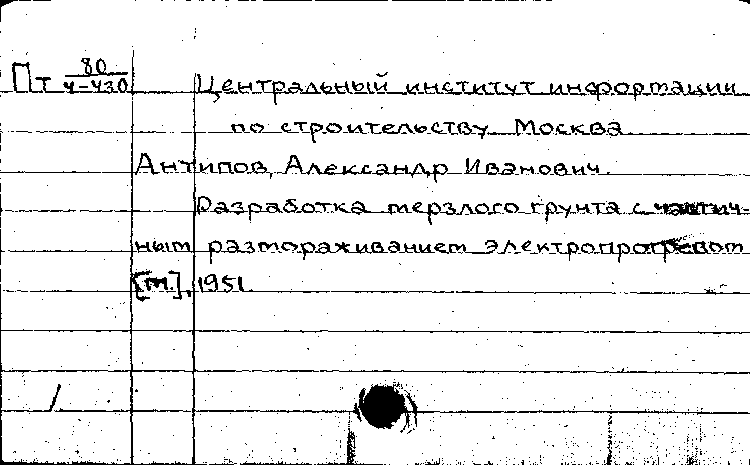 Пт 80/4-430 Центральный институт информации
по строительству. Москва
Антипов, Александр Иванович.
Разработка мерзлого грунта с частич-
ным размораживанием электропрогревом
[М.], 1951.
/